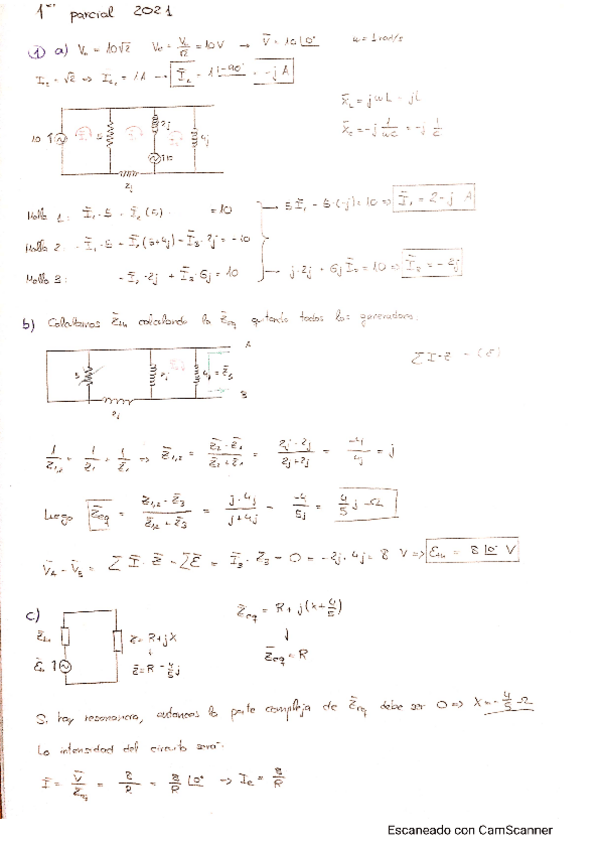 1er parcial 2021
① a) V₀ = 10√2 Ve = V₀/√2 = 10V → V̄ = 10∠0° ω = 1 rad/s
I₂ = √2 ⇒ I₂ₑ = 1A → Ī₂ = 1∠-90° = -j A
X̄L = jωL = jL
X̄c = -j 1/ωC = -j 1/C
10 5 2j 10 4j
2j
Malla 1: Ī₁·5 - Ī₂(5) = 10
5Ī₁ - 5·(-j) = 10 ⇒ Ī₁ = 2-j A
Malla 2: - Ī₁·5 - Ī₂(5+4j) - Ī₃·2j = -10
Malla 3: - Ī₂·2j + Ī₃·6j = 10
j·2j + 6jĪ₃ = 10 ⇒ Ī₃ = -2j
b) Calculamos Z̄th calculando la Z̄eq quitando todos los generadores.
A
5 2j 4j = Z̄3
2j B
1/Z̄1,2 = 1/Z̄1 + 1/Z̄2 ⇒ Z̄1,2 = Z̄2·Z̄1/Z̄1+Z̄2 = 2j·2j/2j+2j = -4/4j = j
Luego Z̄eq = Z̄1,2·Z̄3/Z̄1,2+Z̄3 = j·4j/j+4j = -4/5j = 4/5 j Ω
V̄A - V̄B = Σ Ī·Z̄ - ΣĒ = Ī3·Z3 - 0 = -2j·4j = 8 V ⇒ Ēth = 8∠0° V
c)
Z̄eq = R + j(x+4/5)
Z̄eq = R
Z̄th
Z̄ = R+jX
Z̄ = R - 4/5 j
Si hay resonancia, entonces la parte compleja de Z̄eq debe ser 0 ⇒ X = -4/5 Ω
La intensidad del circuito será:
Ī = V̄/Z̄eq = 8/R = 8/R ∠0° → Ie = 8/R
Escaneado con CamScanner